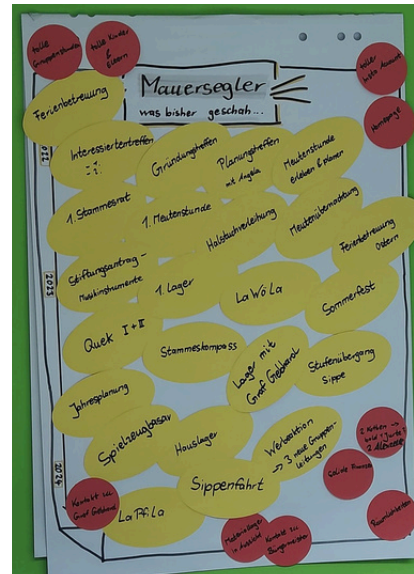 tolle
Gruppenstunden
tolle Kinder
&
Eltern
toller
Insta Account
Homepage
Mauersegler
was bisher geschah...
Ferienbetreuung
2022
Interessiertentreffen
Gründungstreffen
Planungstreffen
mit Angela
Meutenstunde
erleben & planen
1. Stammesrat
1. Meutenstunde
Halstuchverleihung
Meutenübernachtung
Ferienbetreuung
Ostern
2023
Stiftungsantrag -
Musikinstrumente
1. Lager
LaWöLa
Sommerfest
Quek I + II
Stammeskompass
Lager mit
Graf Gebhard
Stufenübergang
Sippe
Jahresplanung
Spielzeugbasar
Hauslager
Werbeaktion
→ 3 neue Gruppen-
leitungen
2 Kothen →
bald 1 Jurte?
2024
Sippenfahrt
Kontakt zu
Graf Gebhard
LaPfiLa
Solide Finanzen
Materiallager
in Aussicht
Kontakt zu
Bürgermeister
Räumlichkeiten